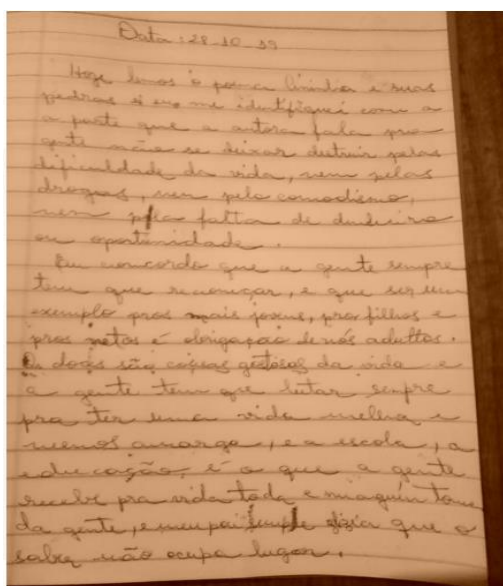 Data: 28-10-19
Hoje lemos o poema Aninha e suas
pedras e eu me identifiquei com a
a parte que a autora fala pra
gente não se deixar destruir pelas
dificuldade da vida, nem pelas
drogas, nem pelo comodismo,
nem pela falta de dinheiro
ou oportunidade.
Eu concordo que a gente sempre
tem que recomeçar, e que ser um
exemplo pros mais jovens, pros filhos e
pros netos é obrigação de nós adultos.
Os doces são coisas gostosas da vida e
a gente tem que lutar sempre
pra ter uma vida melhor e
menos amarga, e a escola, a
educação, é o que a gente
recebe pra vida toda e ninguém toma
da gente, e meu pai sempre dizia que o
saber não ocupa lugar.